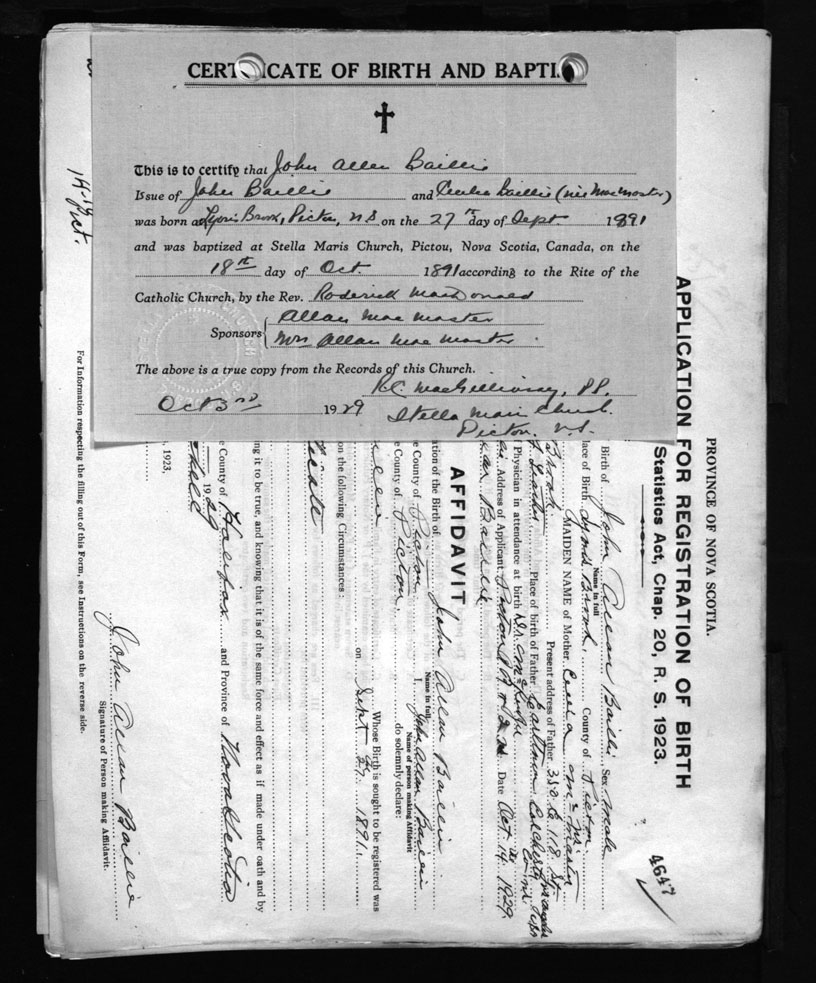 CERT ICATE OF BIRTH AND BAPTI
This is to certify that John Allen Baillie
Issue of John Baillie and Cecelia Baillie (nee MacMaster)
was born at Lyons Brook, Pictou, N.S. on the 27th day of Sept. 1891
and was baptized at Stella Maris Church, Pictou, Nova Scotia, Canada, on the
18th day of Oct. 1891 according to the Rite of the
Catholic Church, by the Rev. Roderick MacDonald
Sponsors Allan MacMaster
Mrs Allan MacMaster
The above is a true copy from the Records of this Church.
R.C. MacGillivray, P.P.
Oct 3rd 1929 Stella Maris Church.
Pictou, N.S.
PROVINCE OF NOVA SCOTIA.
APPLICATION FOR REGISTRATION OF BIRTH
Statistics Act, Chap. 20, R. S. 1923.
4647
Birth of John Allan Baillie Sex Male
Name in full
lace of Birth Lyons Brook, County of Pictou
MAIDEN NAME of Mother Cecelia McMaster
Brook Present address of Father 350 E. 118 St.
Place of birth of Father Earltown Colchester Co. N.S.
Physician in attendance at birth Dr.
Address of Applicant Pictou Date Oct. 14 1929
Baillie
AFFIDAVIT
ation of the Birth of John Allan Baillie
Name in full
e County of Pictou I, John Allan Baillie
Name of person making Affidavit
e County of Pictou, do solemnly declare:
Whose Birth is sought to be registered was
on Sept 27 1891
on the following Circumstances:
icate
ing it to be true, and knowing that it is of the same force and effect as if made under oath and by
e County of Halifax and Province of Nova Scotia
1929
, 1923.
John Allan Baillie
Signature of Person making Affidavit.
For Information respecting the filling out of this Form, see Instructions on the reverse side.
Pict.